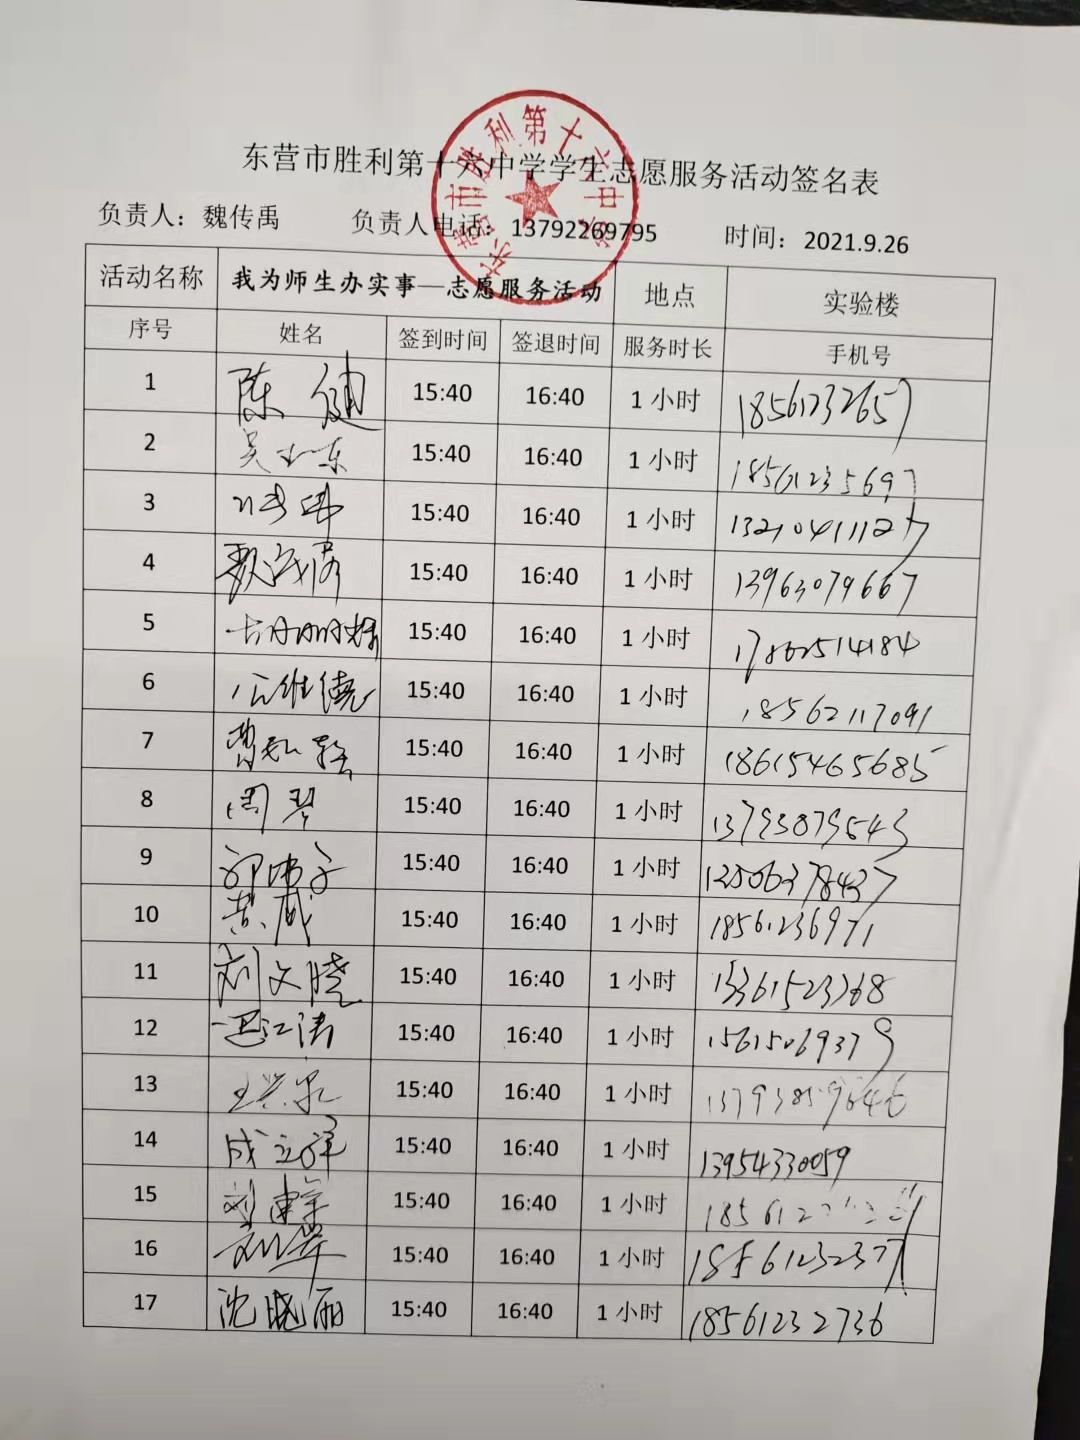 东营市胜利第十六中学
东营市胜利第十六中学学生志愿服务活动签名表
负责人：魏传禹 负责人电话：13792269795 时间：2021.9.26
活动名称 我为师生办实事—志愿服务活动 地点 实验楼
序号 姓名 签到时间 签退时间 服务时长 手机号
1 陈健 15:40 16:40 1 小时 18561232657
2 15:40 16:40 1 小时 18561235697
3 15:40 16:40 1 小时 13210411127
4 15:40 16:40 1 小时 13963079667
5 15:40 16:40 1 小时 17862514184
6 15:40 16:40 1 小时 18562117091
7 15:40 16:40 1 小时 18615465685
8 周琴 15:40 16:40 1 小时 13793879543
9 15:40 16:40 1 小时
10 黄威 15:40 16:40 1 小时 18561236971
11 刘文晓 15:40 16:40 1 小时 13361523768
12 15:40 16:40 1 小时 15615069379
13 15:40 16:40 1 小时
14 成立祥 15:40 16:40 1 小时 13954330059
15 15:40 16:40 1 小时
16 15:40 16:40 1 小时
17 沈晓丽 15:40 16:40 1 小时 18561232736